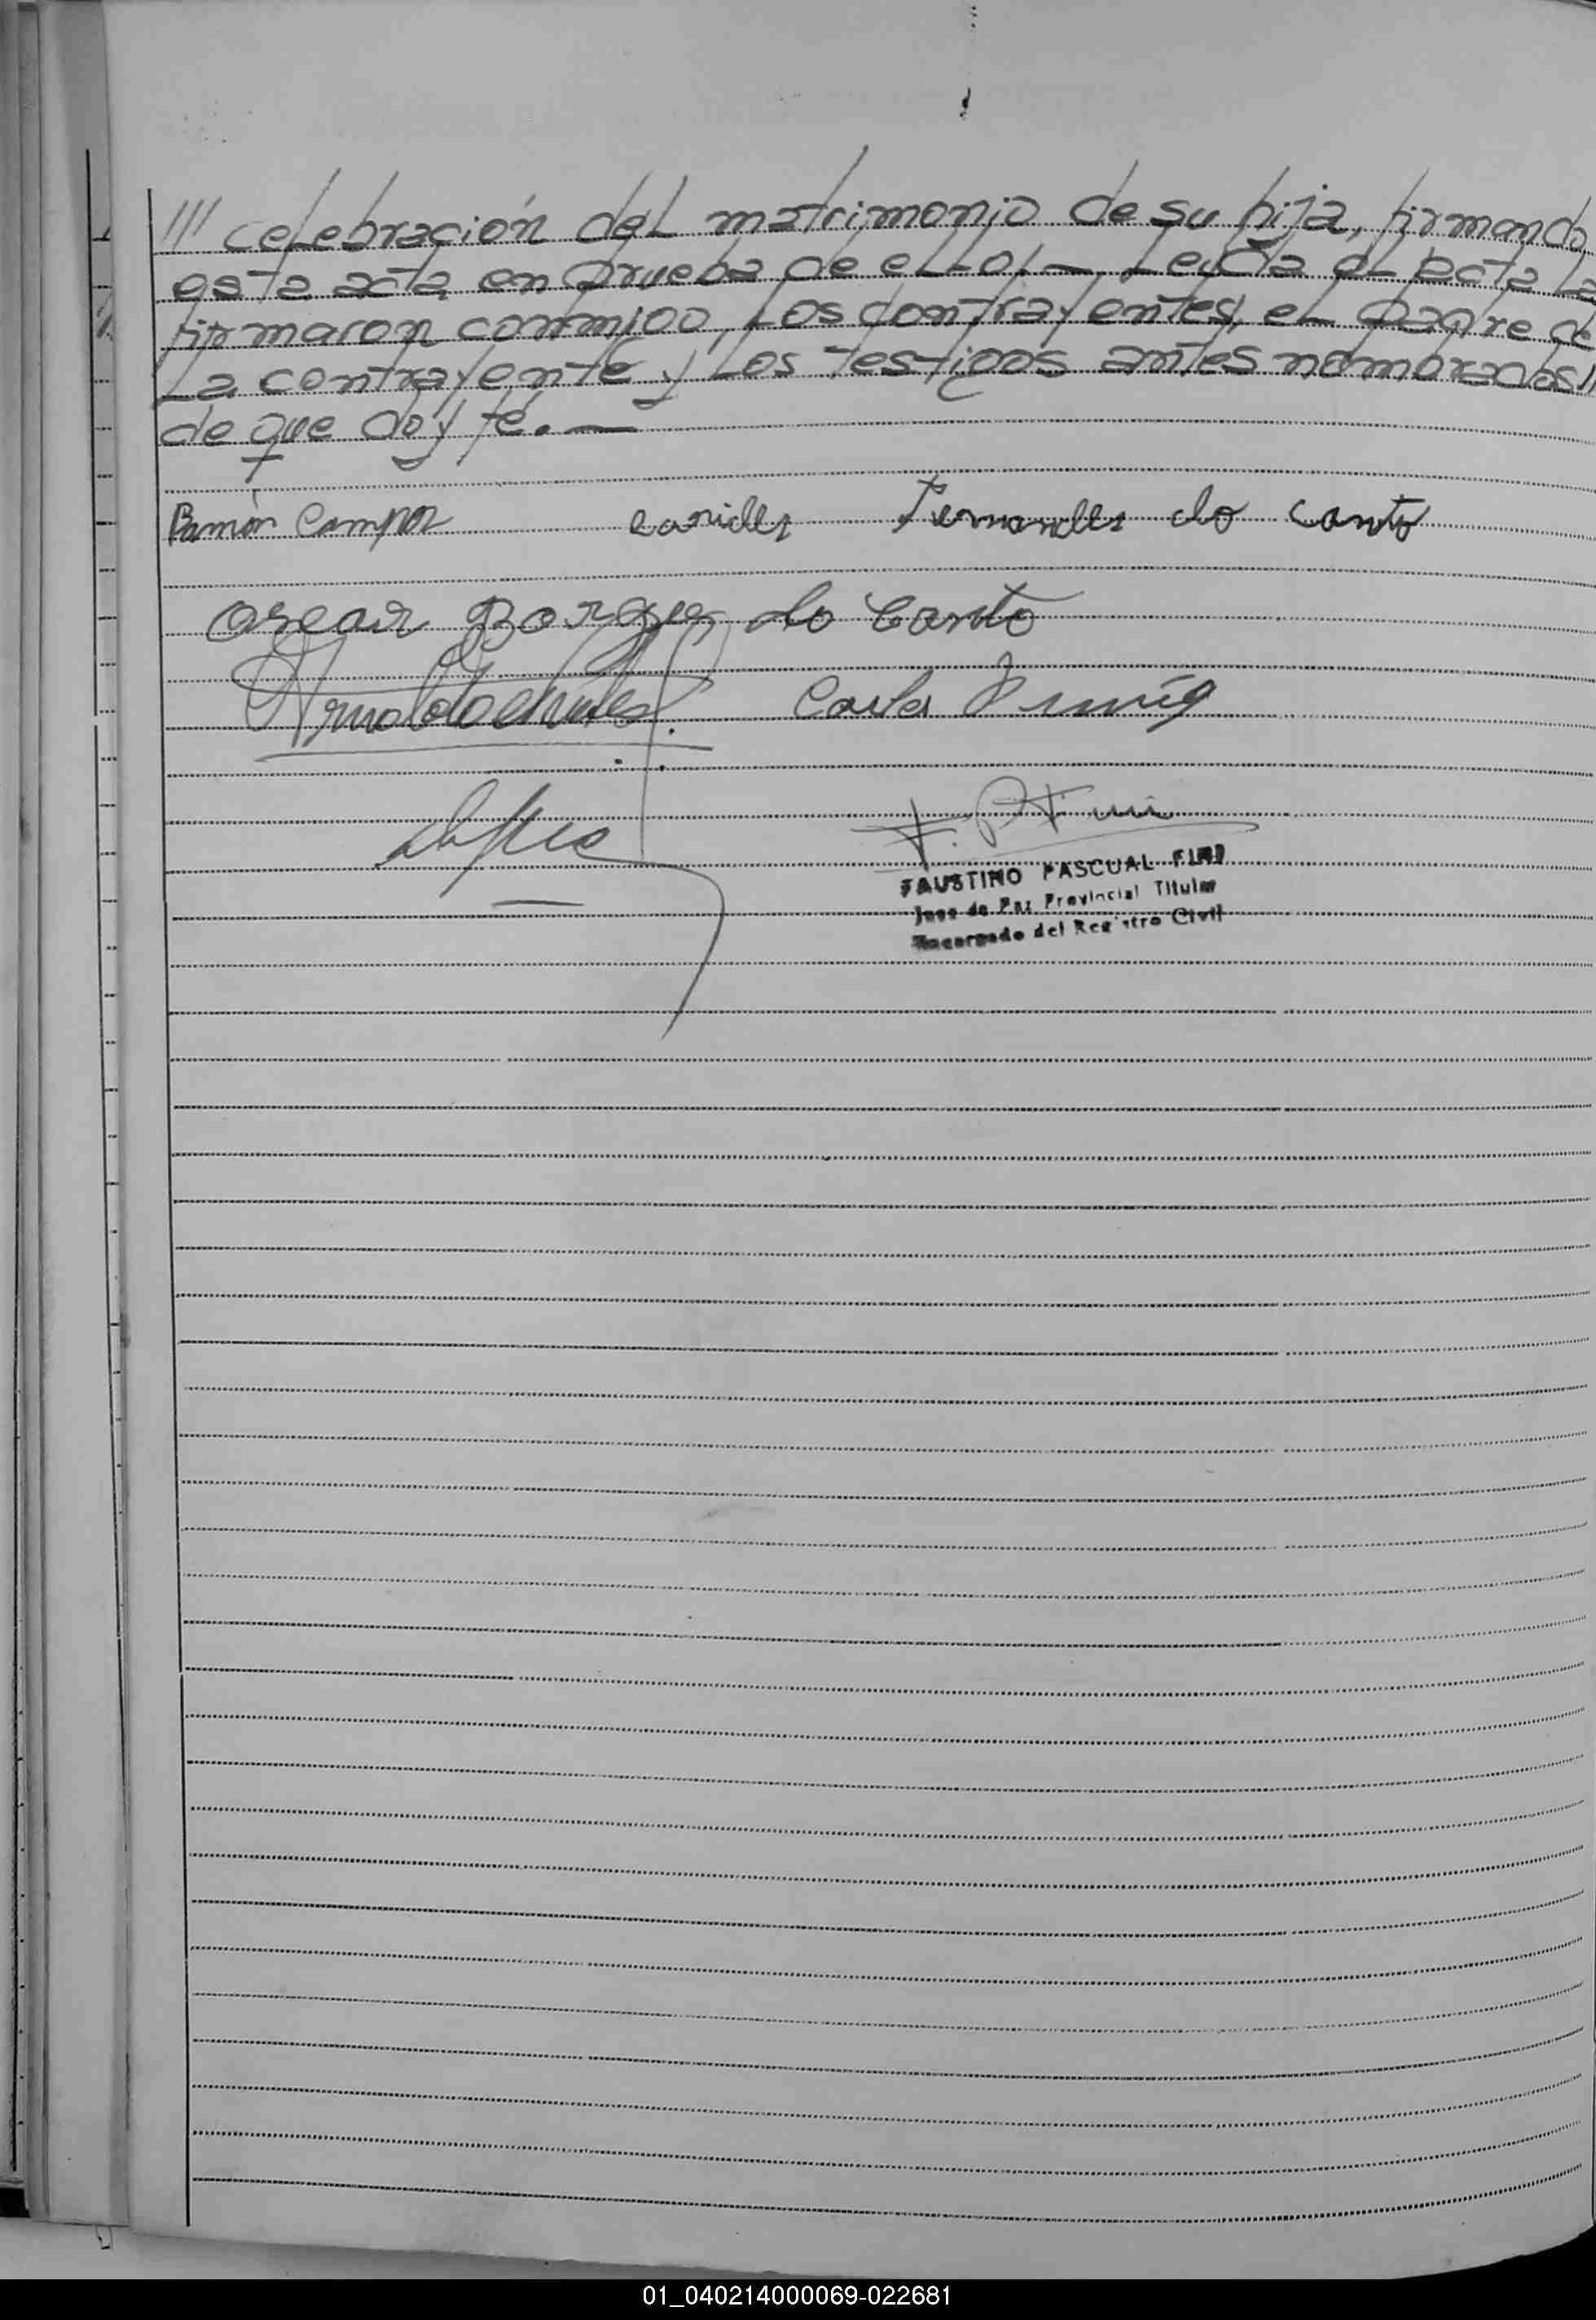 /// celebración del matrimonio de su hija, firmando
esta acta en prueba de ello.— Leída el acta la
firmaron conmigo, los contrayentes, el padre de
la contrayente y los testigos antes nombrados//
de que doy fé. —
Ramón Campos eanides Fernandes do Canto
Oscar Borges do Canto
Arnoldo Carlos
F. P Firpi
FAUSTINO PASCUAL
Juez de Paz Provincial Titular
Encargado del Registro Civil
01_040214000069-022681